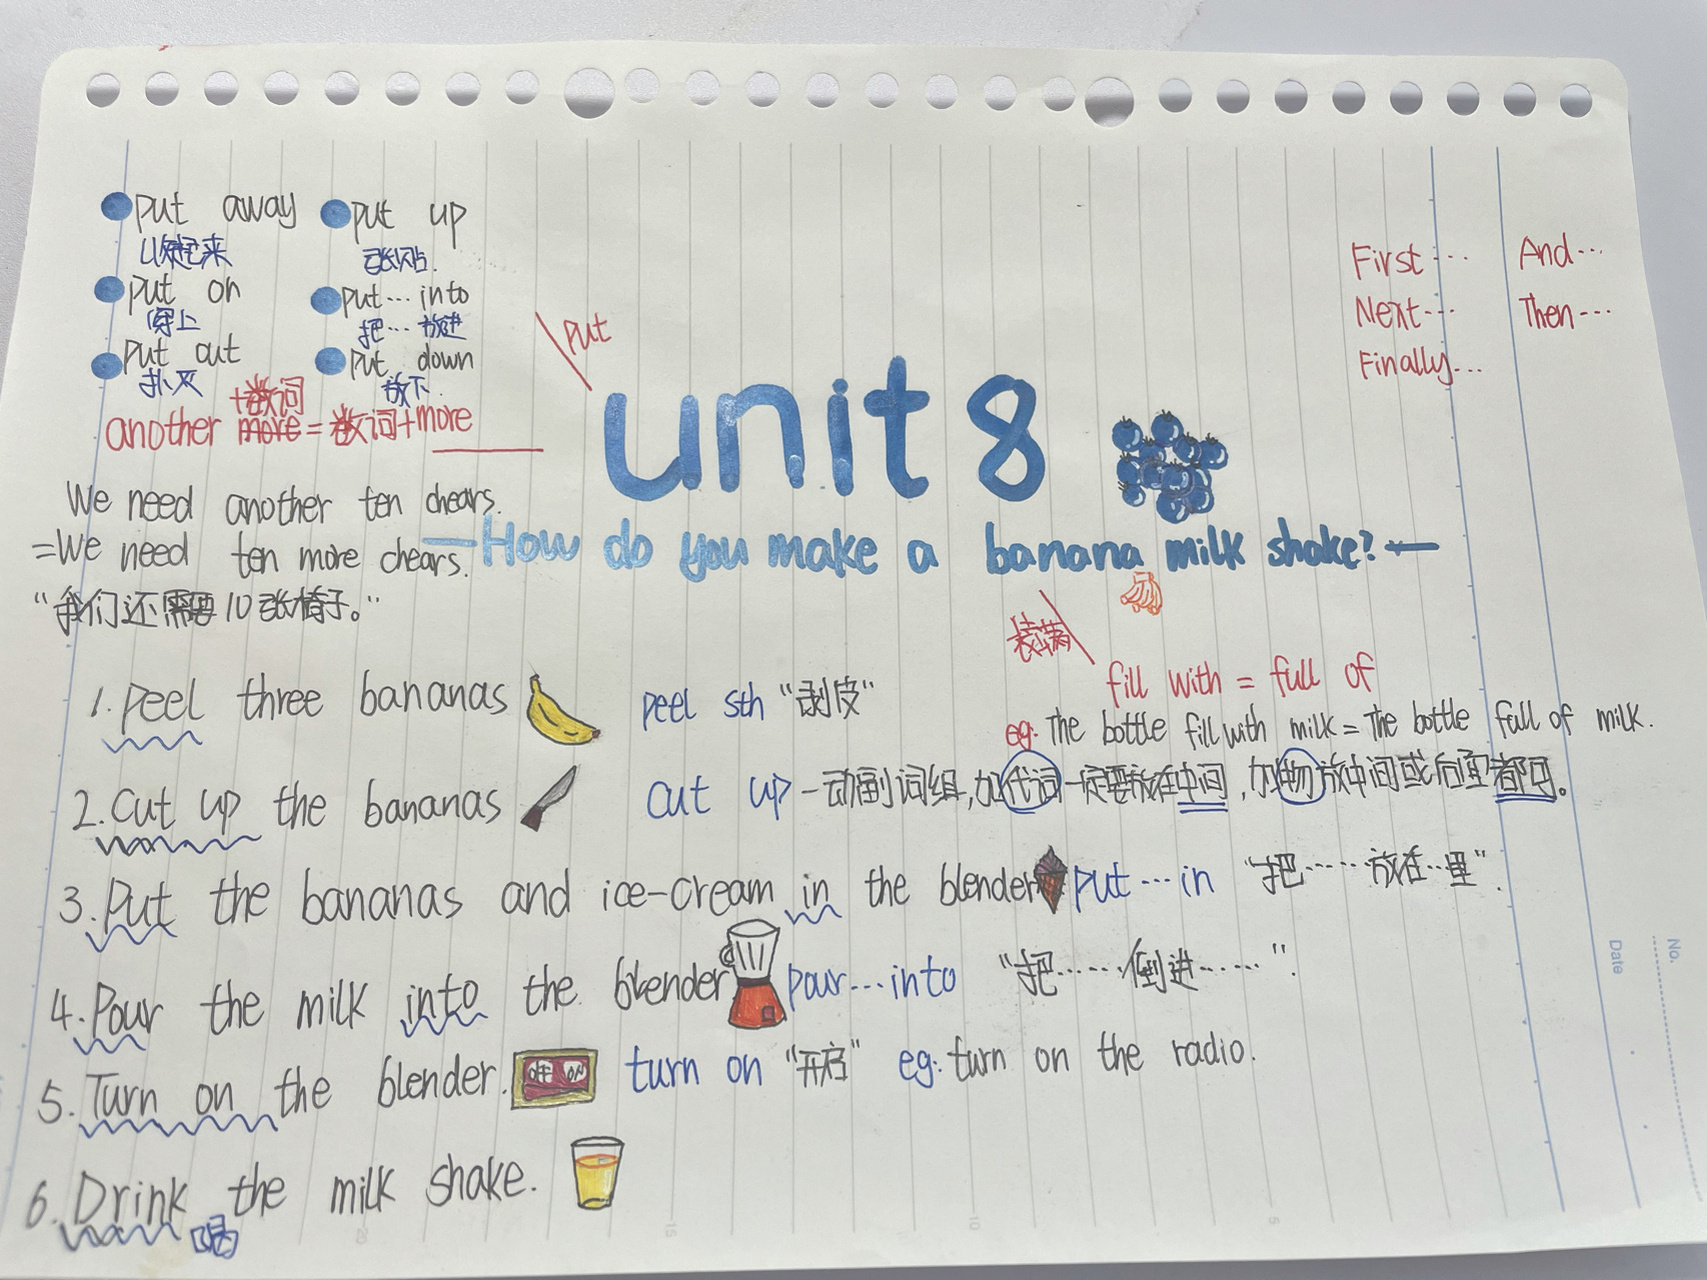 put away put up
收起来 张贴.
put on put…into
穿上 把…放进
put out put down
扑灭 放下.
+数词
another more=数词+more
We need another ten chears.
=We need ten more chears.
“我们还需要10张椅子。”
put
unit 8
—How do you make a banana milk shake?—
First… And…
Next… Then…
Finally…
装满
fill with = full of
eg: The bottle fill with milk = The bottle full of milk.
1. Peel three bananas peel sth “剥皮”
2. Cut up the bananas cut up - 动副词组,加代词一定要放在中间,加物放中间或后面都可。
3. Put the bananas and ice-cream in the blender put…in “把……放在…里”.
4. Pour the milk into the blender pour…into “把……倒进……”.
5. Turn on the blender. OFF ON turn on “开启” eg: turn on the radio.
6. Drink the milk shake.
喝
No.
Date
20 15 10 5